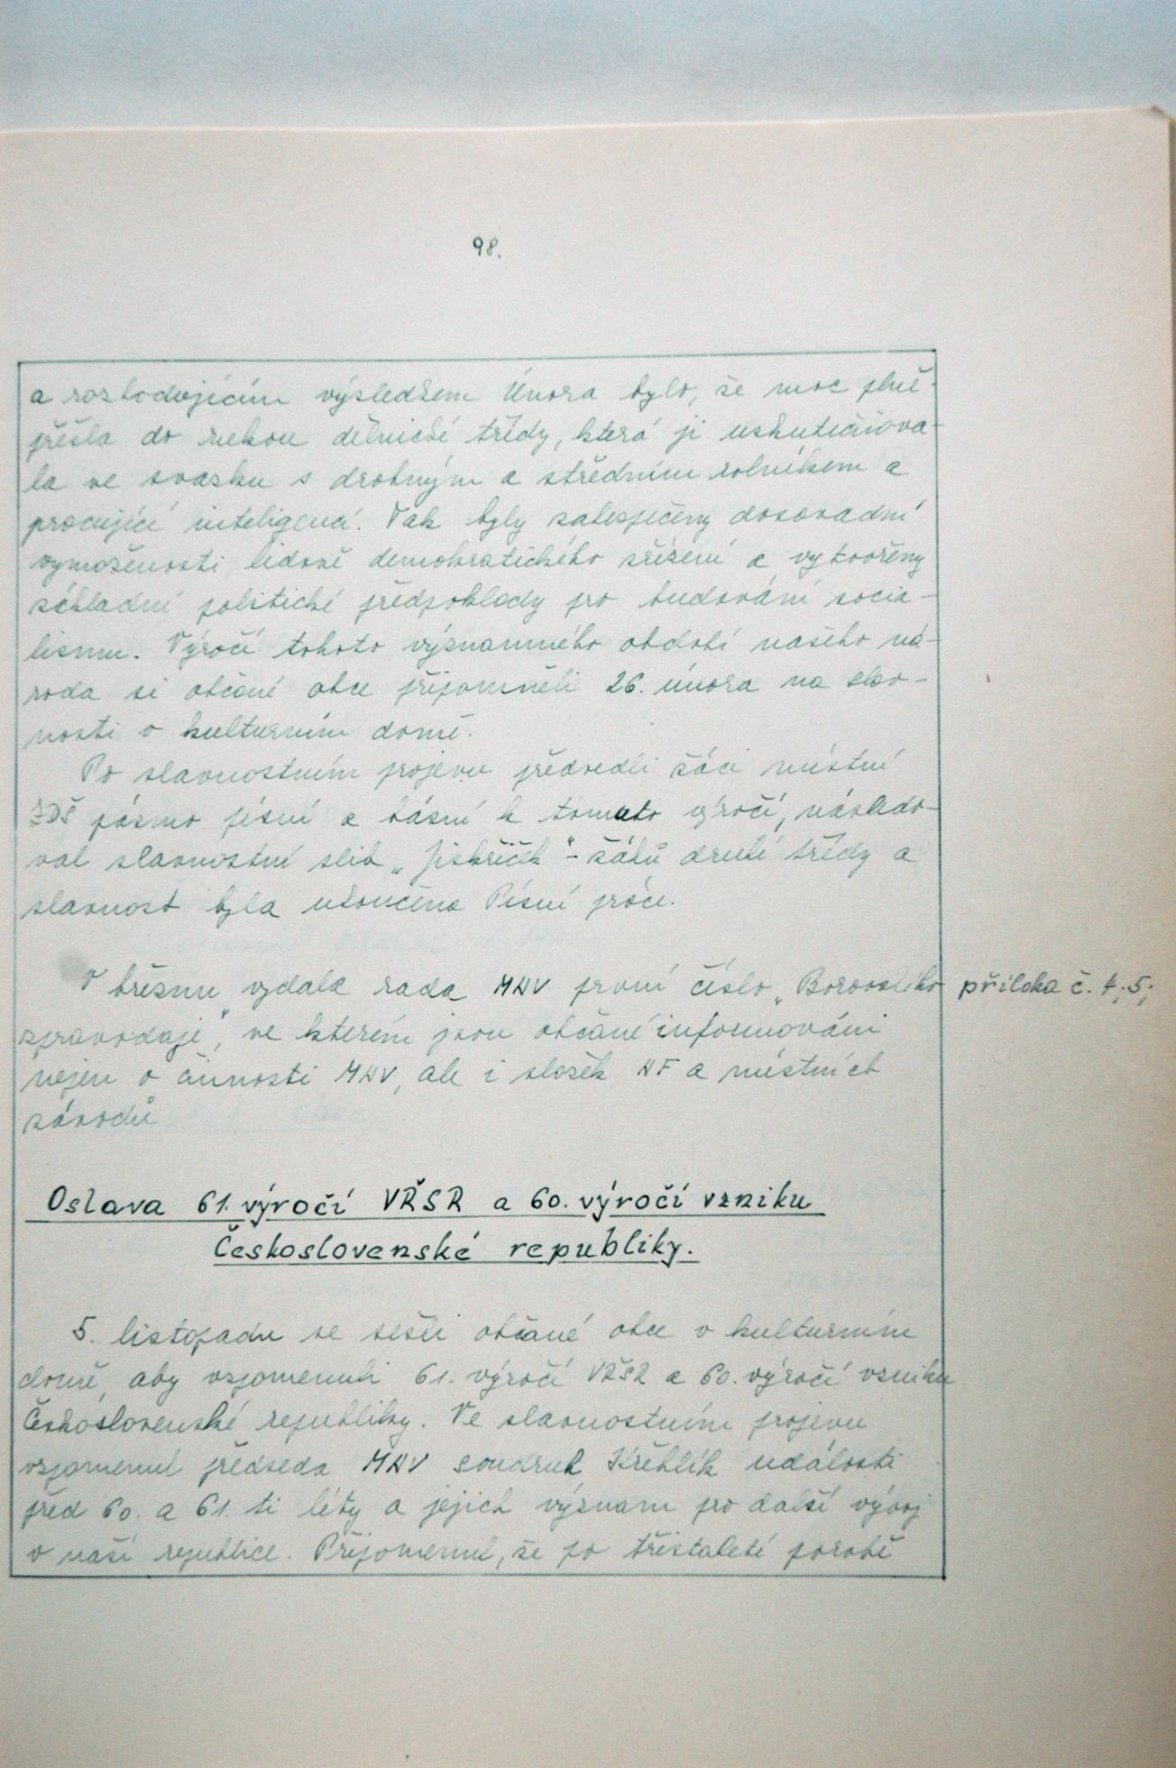 98.
a rozhodujícím výsledkem Února bylo, že moc plně
přešla do rukou dělnické třídy, která ji uskutečňova-
la ve svazku s drobným a středním rolníkem a
pracující inteligencí. Tak byly zabezpečeny dosavadní
vymoženosti lidově demokratického zřízení a vytvořeny
základní politické předpoklady pro budování socia-
lismu. Výročí tohoto významného období našeho ná-
roda si občané obce připomněli 26. února na slav-
nosti v kulturním domě.
Po slavnostním projevu předvedli žáci místní
ZDŠ pásmo písní a básní k tomuto výročí, následo-
val slavnostní slib „Jiskřiček" - žáků druhé třídy a
slavnost byla ukončena Písní práce.
V březnu vydala rada MNV první číslo „Borovského příloha č. 4, 5;
zpravodaje", ve kterém jsou občané informováni
nejen o činnosti MNV, ale i složek NF a místních
závodů
Oslava 61. výročí VŘSR a 60. výročí vzniku
Československé republiky.
5. listopadu se sešli občané obce v kulturním
domě, aby vzpomenuli 61. výročí VŘSR a 60. výročí vzniku
Československé republiky. Ve slavnostním projevu
vzpomenul předseda MNV soudruh Křehlík události
před 60. a 61. ti léty a jejich význam pro další vývoj
v naší republice. Připomenul, že po třistaleté porobě